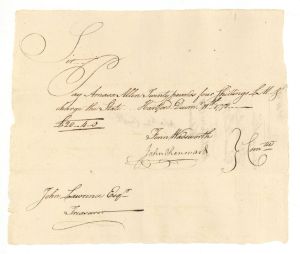 Sir
Pay Amasa Allen Twenty pounds four Shillings L M &
charge the State Hartford
£20-4-0
Fenn Wadsworth
John Chenward
Comtee
John Lawrence Esqr
Treasurer